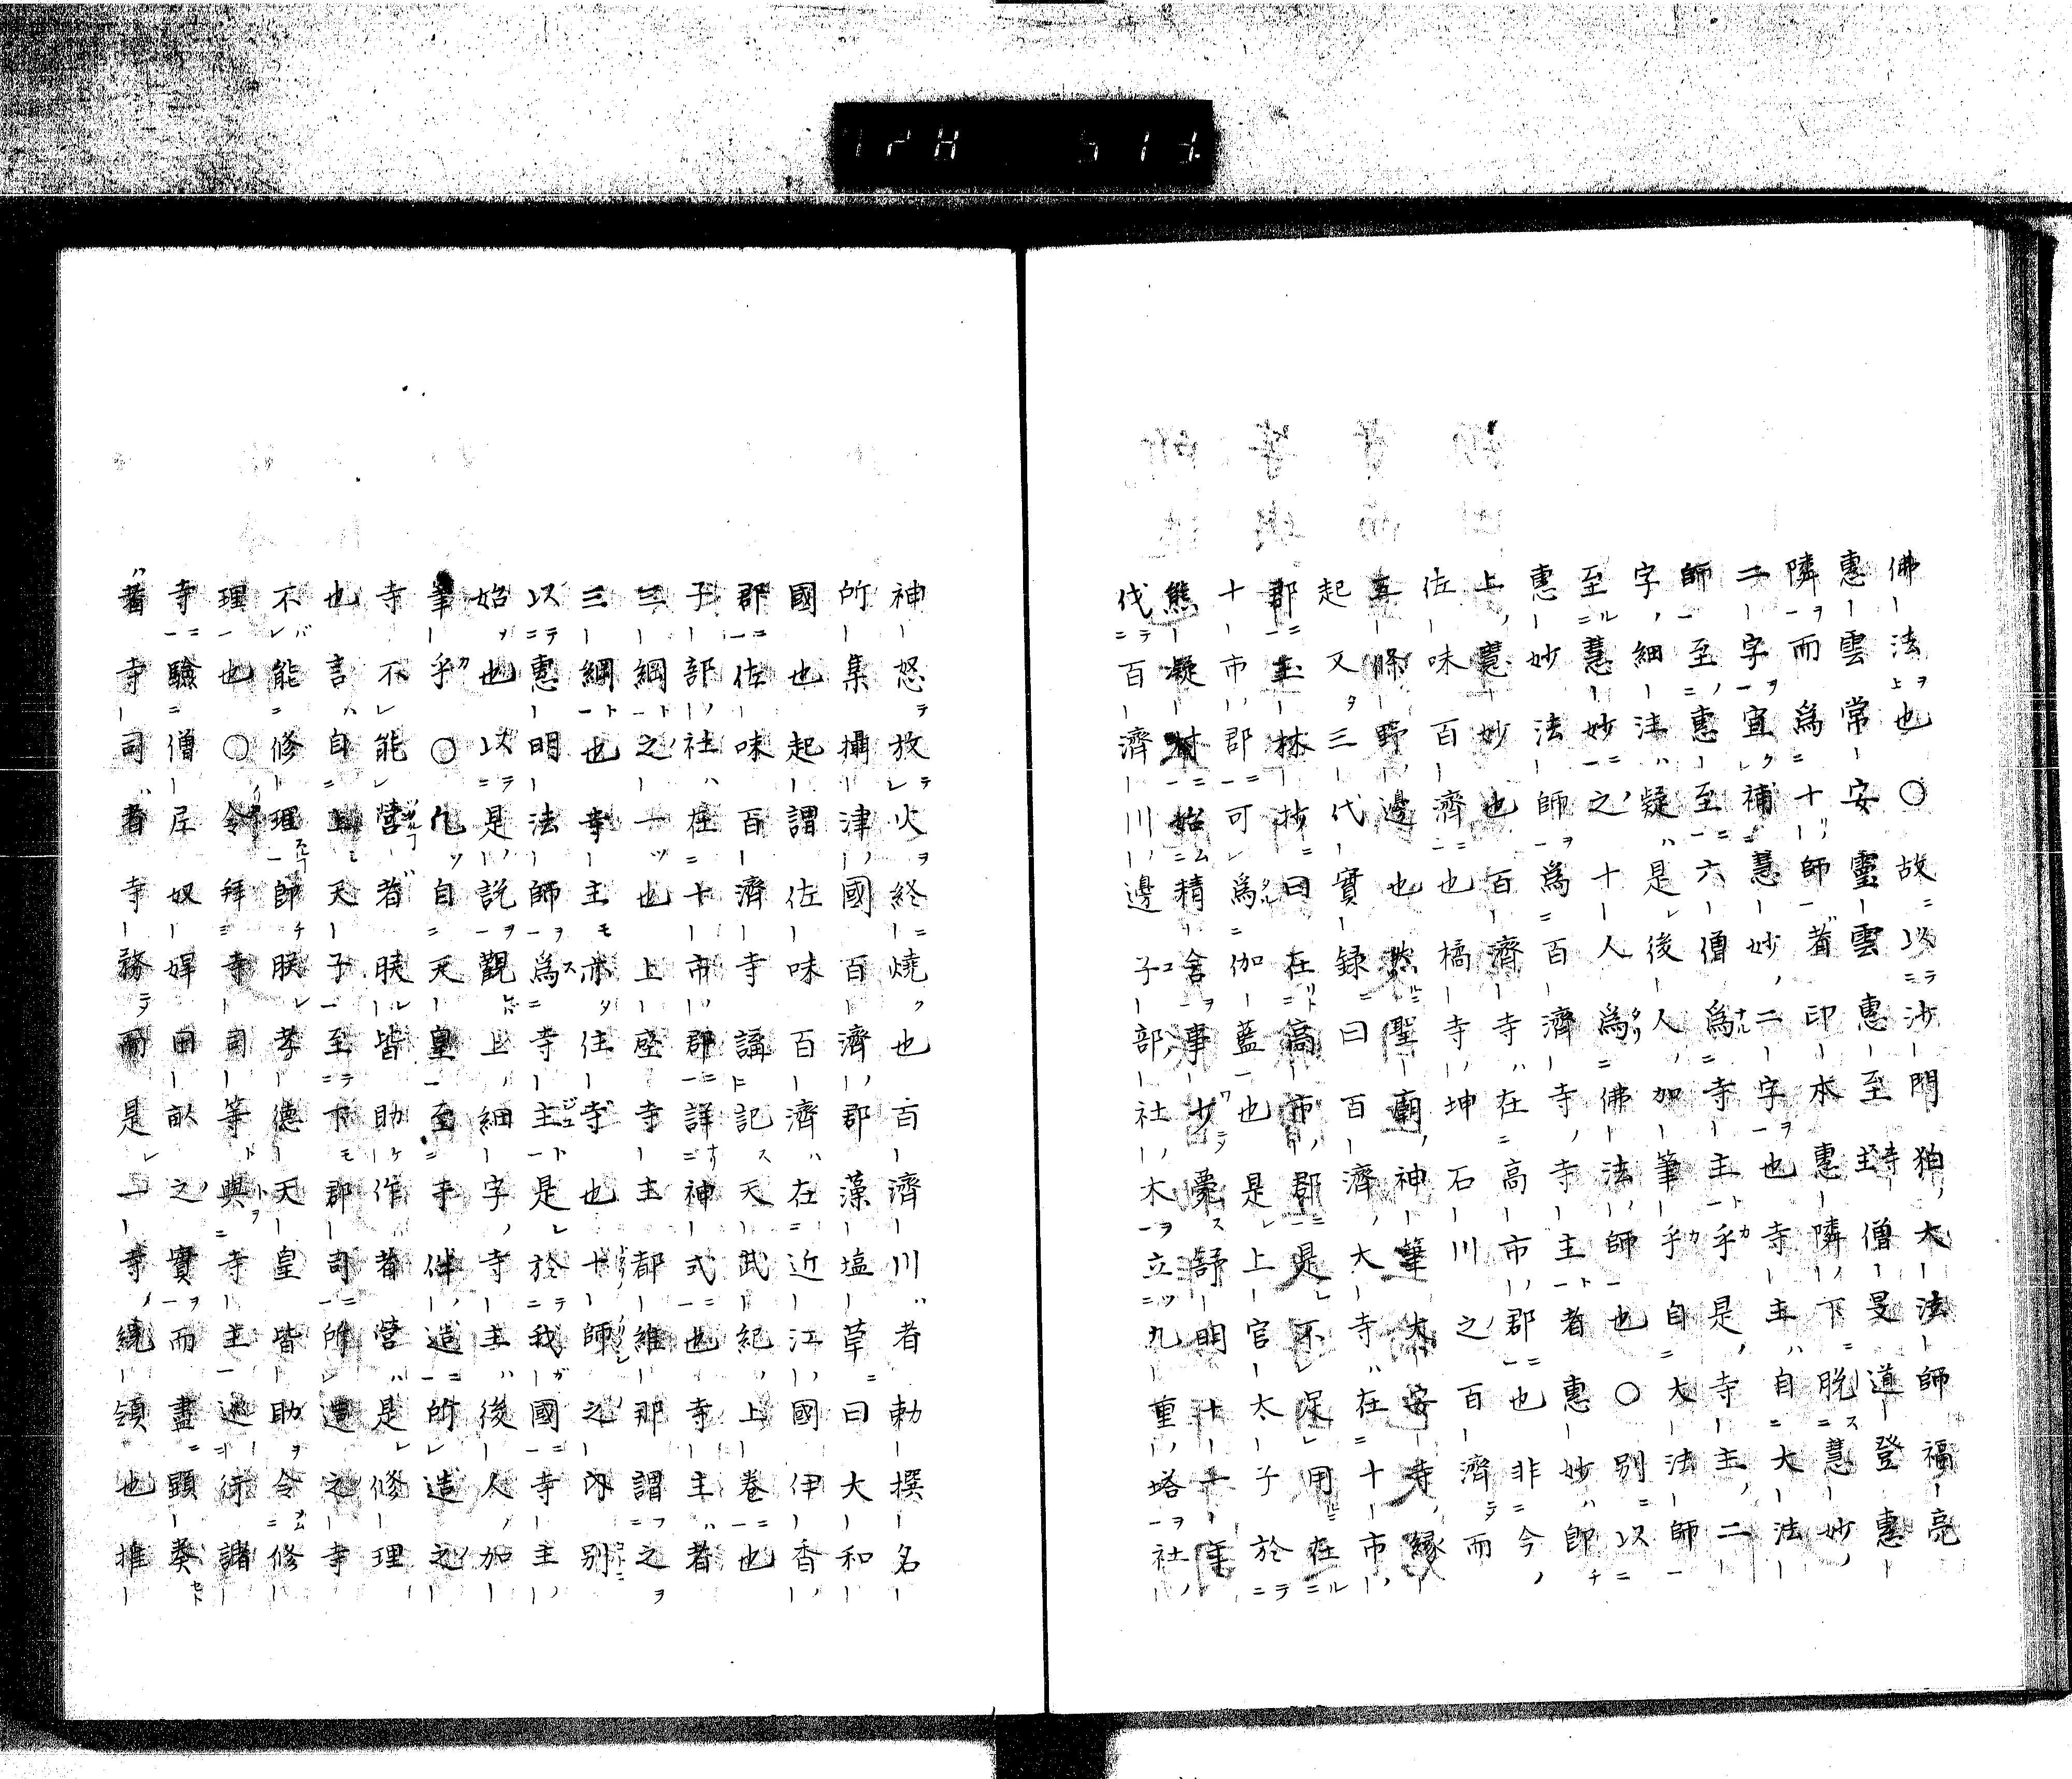 佛法也〇故以沙門狛大法師福亮
惠雲常安靈雲惠至寺主僧旻道登惠
隣而爲十師者印本惠隣下脱慧妙
二字宜補慧妙二字也寺主自大法
師至惠至六僧爲寺主乎是寺主二
字細注疑是後人加筆乎自大法師
至慧妙之十人爲佛法師也〇別以
惠妙法師爲百濟寺寺主者惠妙即
上慧妙也百濟寺在高市郡也非今
佐味百濟也橘寺坤石川之百濟而
五條野邊也然聖廟神筆大安寺縁
起又三代實録曰百濟大寺在十市
郡玉林抄曰在高市郡是不足用在
十市郡可爲伽藍也是上官太子於
熊凝村始精舍事少棄舒明十一年
伐百濟川邊子部社木立九重塔社
神怒放火終燒也百濟川者勅撰名
所集攝津國百濟郡藻塩草曰大和
國也起謂佐味百濟在近江國伊香
郡佐味百濟寺誦記天武紀上卷也
子部社在十市郡詳神式也寺主者
三綱之一也上座寺主都維那謂之
三綱也寺主亦住寺也十師之内別
以惠明法師爲寺主是於我國寺主
始也以是説觀上細字寺主後人加
筆乎〇凡自天皇至寺伴造所造之
寺不能營者朕皆助作者營是修理
也言自上天子至下郡司所造之寺
不能修理師朕孝德天皇皆助令修
理也〇令拜寺司等與寺主巡行諸
寺驗僧尼奴婢田畝之實而盡顕奏
者寺司者寺務而是一寺統領也推